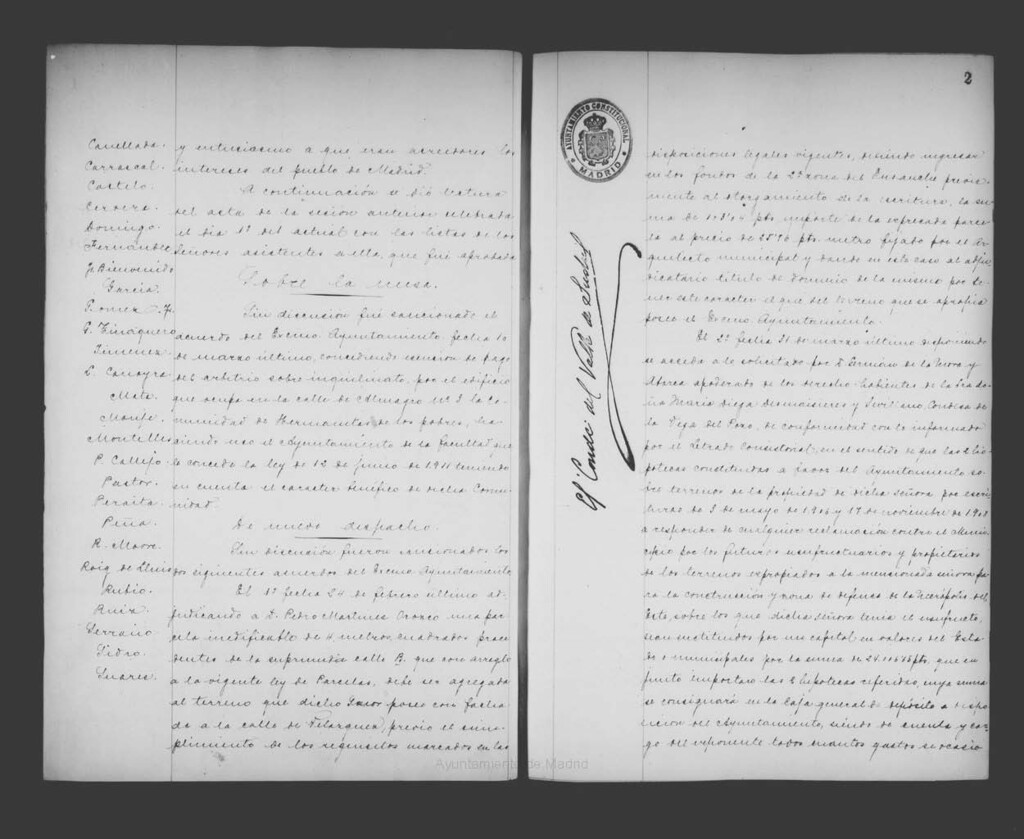 Canellada
Carrascal
Castelo
Cervera
Domingo
Fernandez
Bienvenido
Garcia
Gomez
Jimenez
Mato
Monje
Montelles
P. Callejo
Pastor
Peraita
Peña
R. Moore
Roig de Lluis
Rubio
Ruiz
Serrano
Sidro
Suarez
y entusiasmo a que eran acreedores los
intereses del pueblo de Madrid.
A continuación se dió lectura
del acta de la sesión anterior celebrada
el dia 1º del actual con las listas de los
Señores asistentes a ella, que fué aprobada
Sobre la mesa.
Sin discusión fué sancionado el
acuerdo del Excmo Ayuntamiento fecha 10
de marzo último, concediendo exención de pago
del arbitrio sobre inquilinato, por el edificio
que ocupa en la calle de Almagro Nº 3 la Co-
munidad de Hermanitas de los pobres, ha-
ciendo uso el Ayuntamiento de la facultad que
le concede la ley de 12 de junio de 1911 teniendo
en cuenta el caracter benéfico de dicha Comu-
nidad.
De nuevo despacho.
Sin discusión fueron sancionados los
dos siguientes acuerdos del Excmo Ayuntamiento
El 1º fecha 24 de febrero último ad-
judicando a D. Pedro Martinez Orozco una par-
cela inedificable de 4 metros cuadrados proce-
dentes de la suprimida calle B. que con arreglo
a la vigente ley de Parcelas, debe ser agregada
al terreno que dicho Señor posee con facha-
da a la calle de Velazquez, previo el cum-
plimiento de los requisitos marcados en las
2
AYUNTAMIENTO CONSTITUCIONAL
MADRID
El Conde del Valle de Suchil
disposiciones legales vigentes, debiendo ingresar
en los fondos de la 2ª zona del Ensanche previa-
mente al otorgamiento de la escritura, la su-
ma de pts importe de la expresada parce-
la al precio de pts. metro fijado por el Ar-
quitecto municipal y dando en este caso al adju-
dicatario titulo de dominio de la misma por te-
ner este caracter el que del terreno que se apropia
posee el Excmo Ayuntamiento.
El 2º fecha 31 de marzo último disponiendo
se acceda a lo solicitado por D. Fermin de la y
apoderado de los derecho habientes de la Sra Do-
ña Maria Diega Desmaisieres y Sevillano, Condesa de
la Vega del Pozo, de conformidad con lo informado
por el Letrado Consistorial, en el sentido de que las 2 hi-
potecas constituidas a favor del Ayuntamiento so-
bre terrenos de la propiedad de dicha señora por escri-
turas de 3 de mayo de 1906 y 17 de noviembre de 1908
a responder de cualquier reclamación contra el Muni-
cipio por los futuros usufructuarios y propietarios
de los terrenos expropiados a la mencionada señora pa-
ra la construcción y zona de defensa de la Necrópolis del
Este, sobre los que dicha Señora tenia el usufructo,
sean sustituidas por un capital en valores del Esta-
do o municipales por la suma de pts, que en
junto importaro las 2 hipotecas referidas, cuya suma
se consignará en la Caja general de depósito a dispo-
sición del Ayuntamiento, siendo de cuenta y car-
go del exponente todos cuantos gastos se ocasio
Ayuntamiento de Madrid